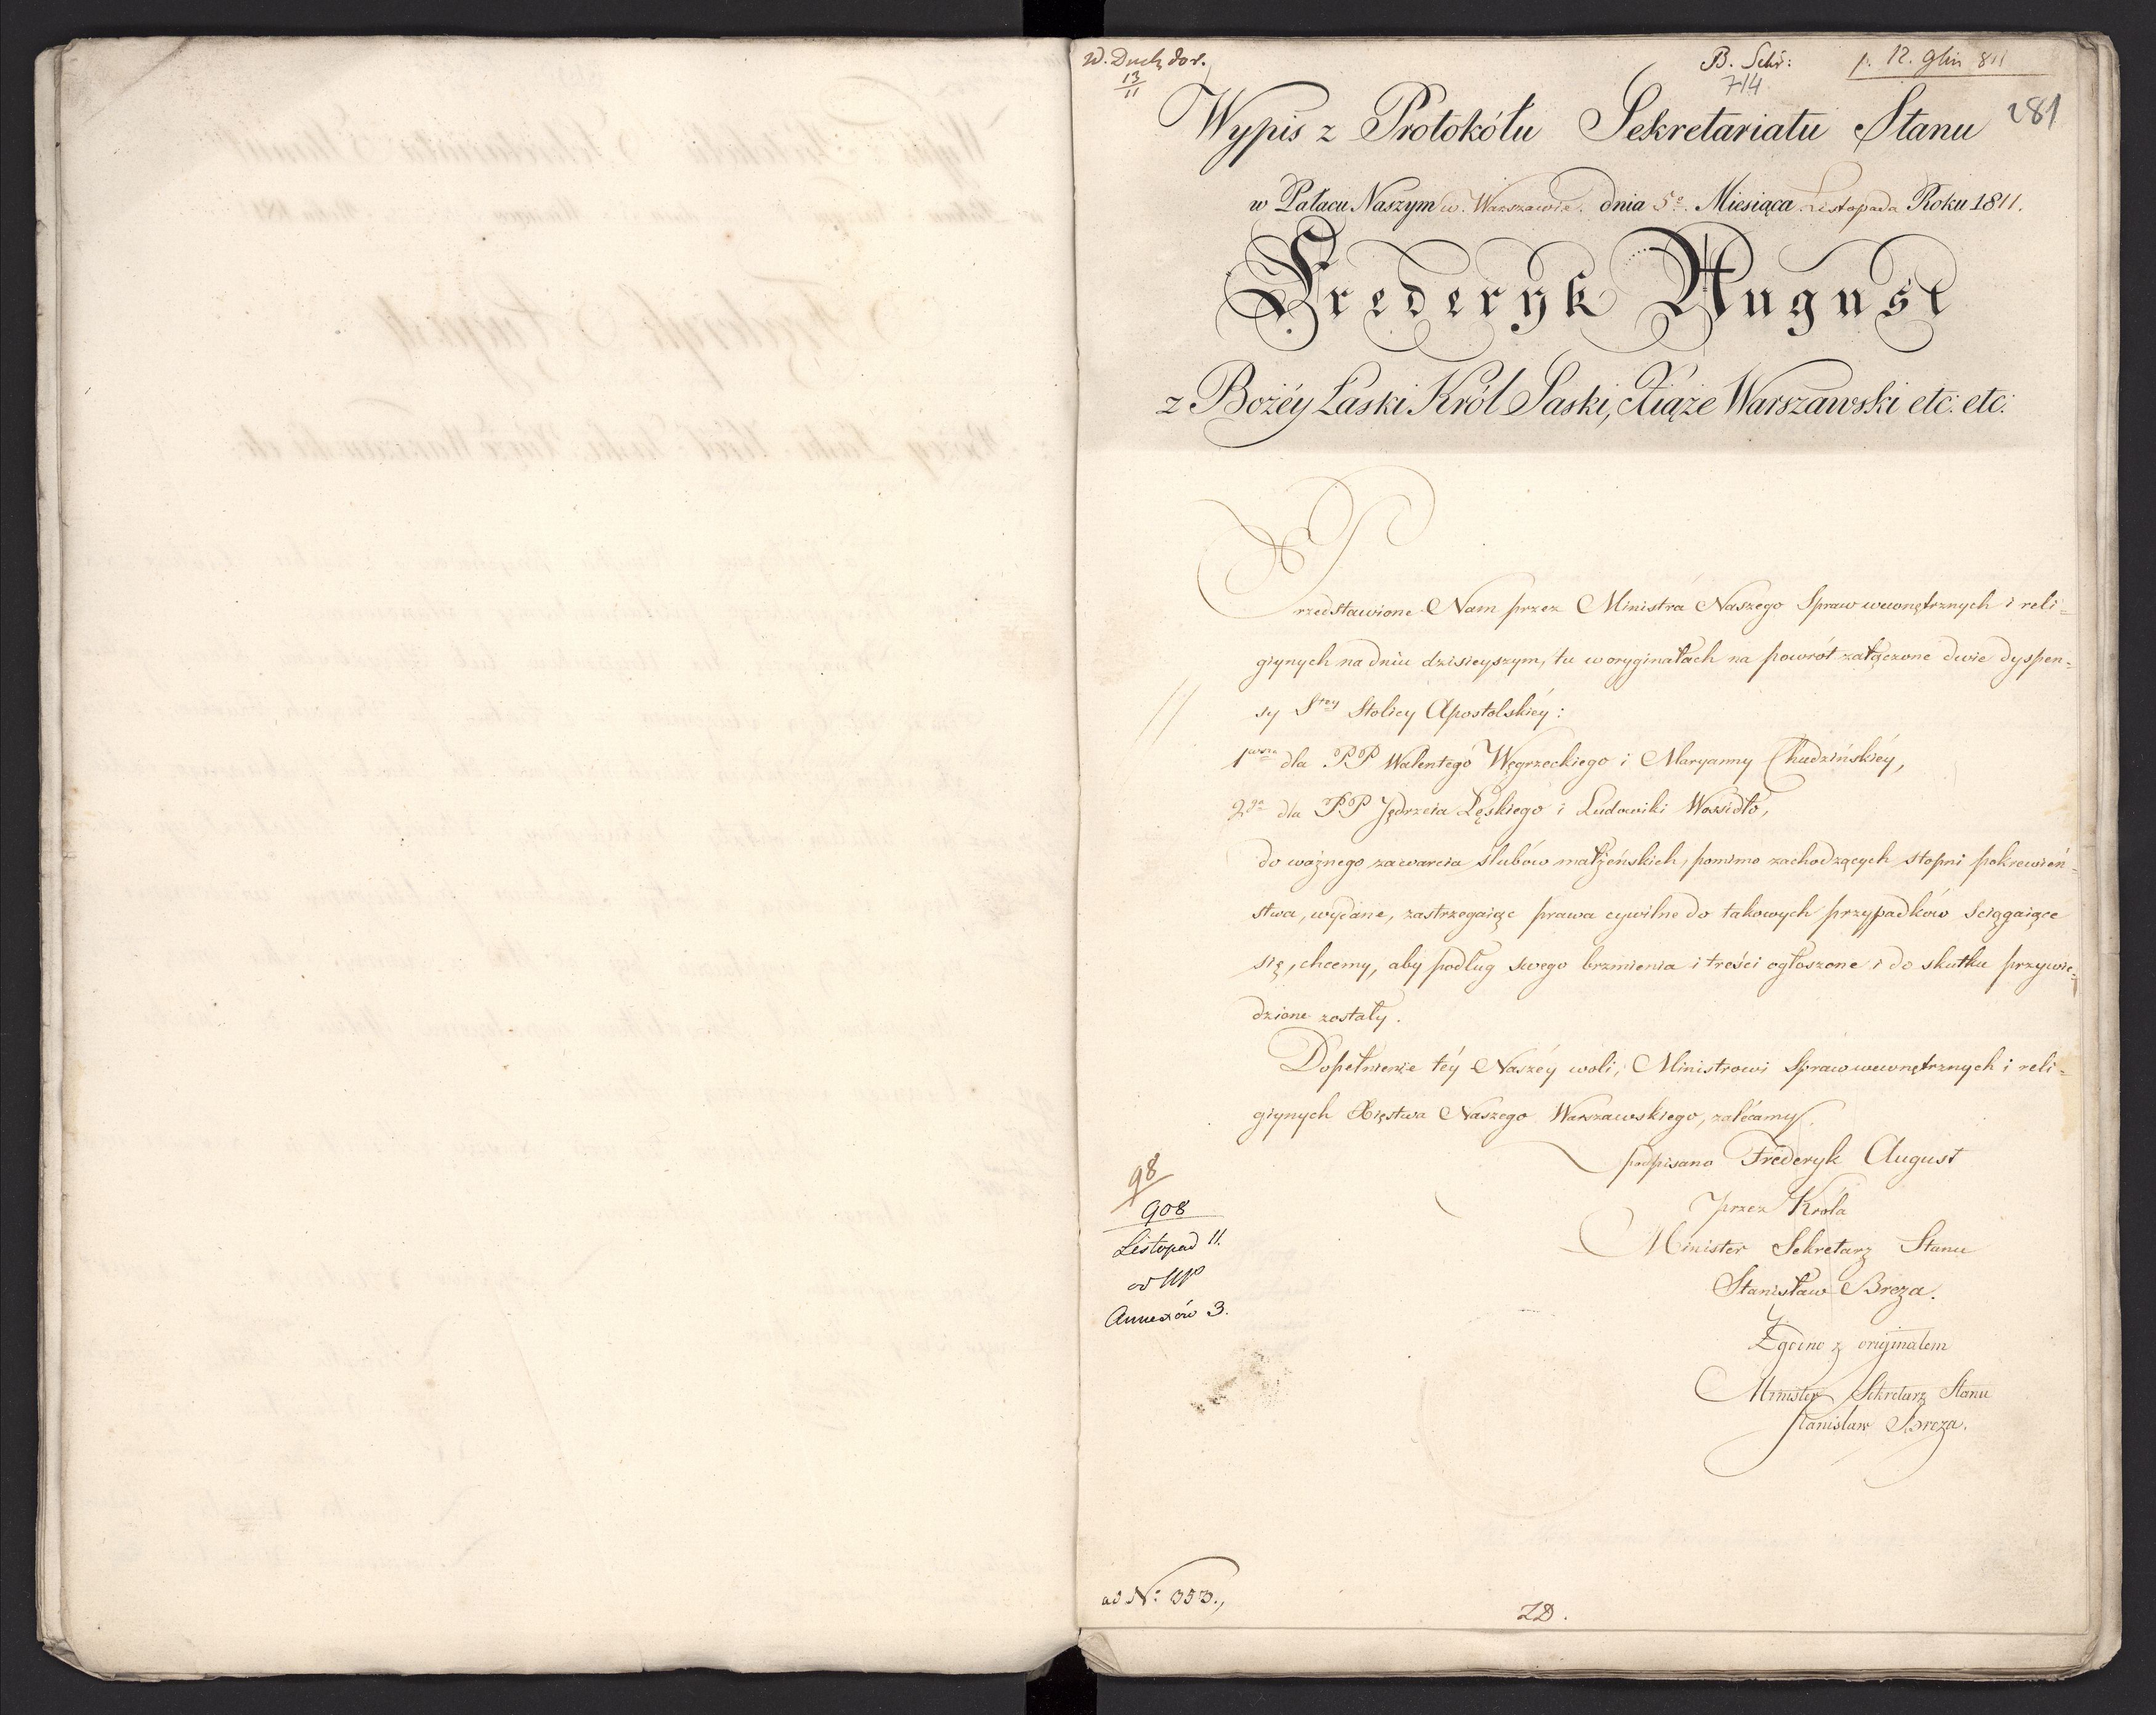 W. Duch. dor.
13
11
B. Sekr:
714
p. 12. 9bris 811
281
Wypis z Protokółu Sekretariatu Stanu
w Pałacu Naszym w Warszawie. dnia 5º Miesiąca Listopada Roku 1811.
Frederyk August
z Bożéy Łaski Król Saski, Xiąże Warszawski etc: etc:
Przedstawione Nam przez Ministra Naszego Spraw wewnętrznych i reli=
giynych na dniu dzisieyszym, tu w oryginałach na powrót załączone dwie dyspen=
sy Stey Stolicy Apostolskiéy:
1wsza dla PP Walentego Węgrzeckiego i Maryanny Chudzińskiéy,
2ga dla PP Jędrzeia Łęskiego i Ludowiki Wossidło,
do ważnego zawarcia ślubów małżeńskich, pomimo zachodzących stopni pokrewień=
stwa, wydane, zastrzegaiąc prawa cywilne do takowych przypadków ściągaiące
się, chcemy, aby podług swego brzmienia i treści ogłoszone i do skutku przywie=
dzione zostały.
Dopełnienie téy Naszéy woli, Ministrowi Spraw wewnętrznych i reli=
giynych Xięstwa Naszego Warszawskiego, zalécamy.
podpisano Frederyk August
przez Króla
Minister Sekretarz Stanu
Stanisław Breza.
Zgodno z originałem
Minister Sekretarz Stanu
Stanisław Breza.
98
908
Listopad 11.
Annexów 3.
ad Nº: 353.,
ZD.